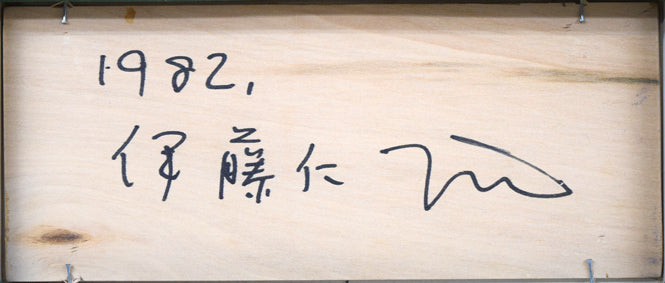 1982.
伊藤仁